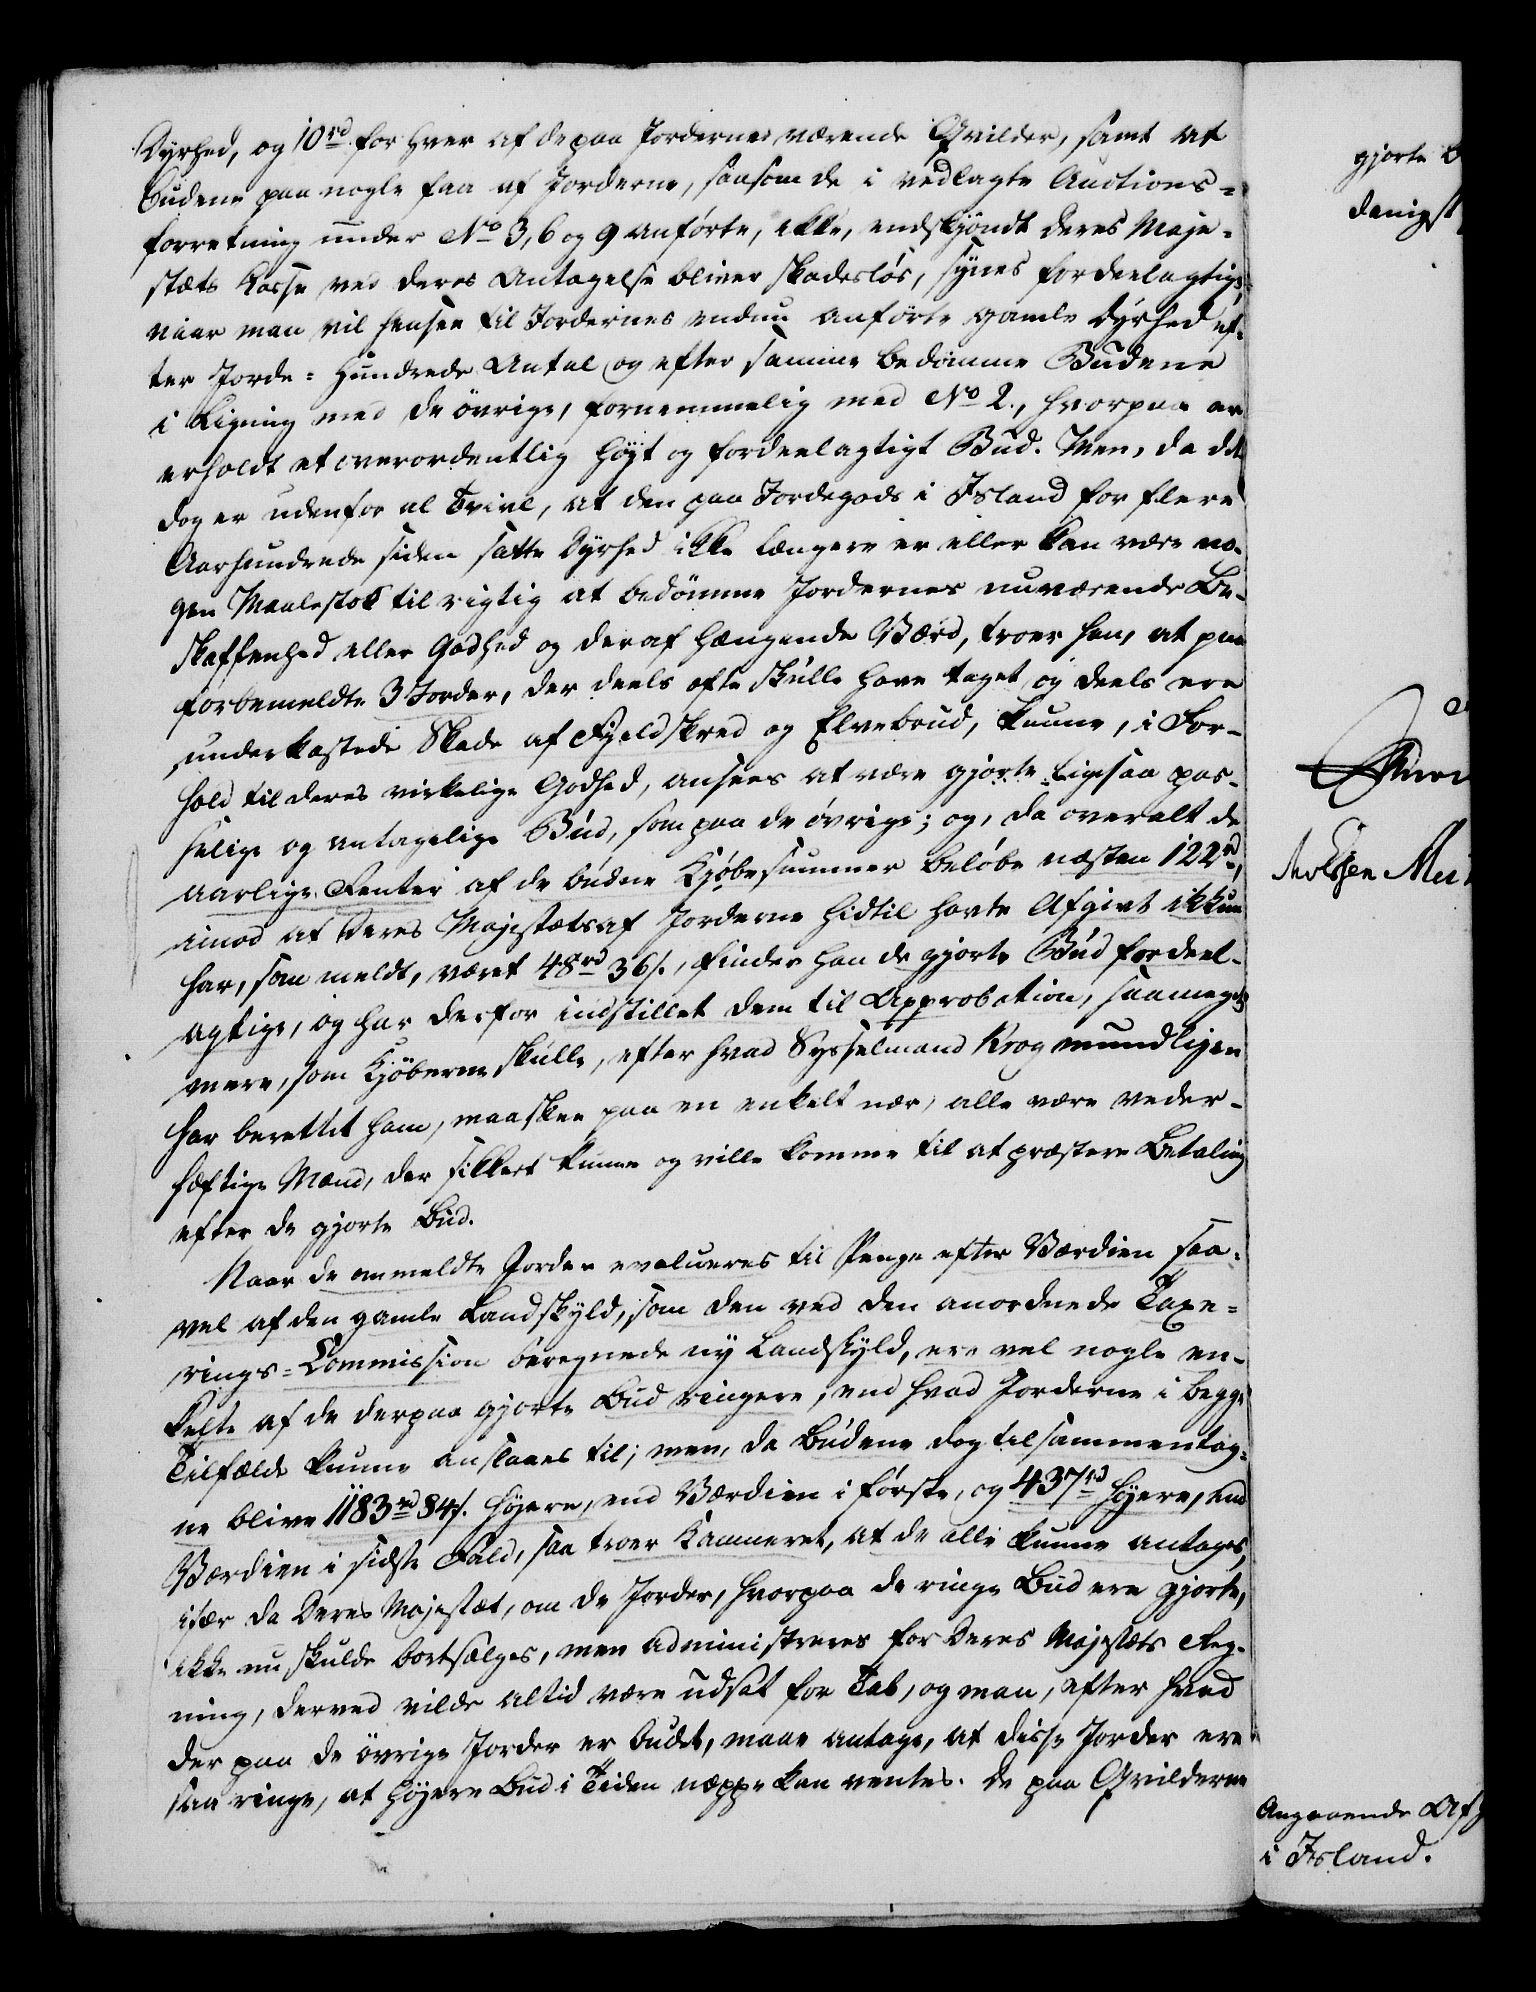 Dyrhed, og 10rd for hver af de paa Jordernes værende Qvilder, samt at
Budene paa nogle faa af Jorderne, saasom de i vedlagte Auctions-
forretning under No 3, 6 og 9 anførte, ikke, endskjøndt Deres Maje-
stæts Kasse ved deres Antagelse bliver skadesløs, synes fordeelagtige,
naar man vil hensee til Jordernes endnu anførte gamle Dyrhed ef-
ter Jorde-Hundrede Antal og efter samme bedømme Budene
i Ligning med de øvrige, fornemmelig med No 2., hvorpaa er
erholdt et overordentlig høyt og fordeelagtigt Bud. Men, da det
dog er udenfor al Tvivl, at den paa Jordegods i Island for flere
Aarhundrede siden satte Dyrhed ikke længere er eller kan være no-
gen Maalestok til rigtig at bedømme Jordernes nuværende Be-
skaffenhed eller Godhed og deraf hængende Værd, troer han, at paa
forbemeldte 3 Jorder, der deels ofte skulle have taget og deels ere
underkastede Skade af Fjeldskred og Elvebrud, kunne, i For-
hold til deres virkelige Godhed, ansees at være gjorte ligesaa pas-
selige og antagelige Bud, som paa de øvrige; og, da overalt de
aarlige Renter af de budne Kjøbesummer beløbe næsten 122rd,
imod at Deres Majestæts af Jorderne hidtil havte Afgivt ikkun
har, som meldt, været 48rd 36s., finder han de gjorte Bud fordeel-
agtige, og har derfor indstillet dem til Approbation, saameget
mere, som Kjøberne skulle, efter hvad Sysselmand Krog mundligen
har berettet ham, maaskee paa en enkelt nær, alle være veder-
hæftige Mænd, der sikkert kunne og ville komme til at præstere Betaling
efter de gjorte Bud.
Naar de anmeldte Jorder evalueres til Penge efter Værdien saa-
vel af den gamle Landskyld, som den ved den anordnede Taxe-
rings-Commission beregnede ny Landskyld, ere vel nogle en-
kelte af de derpaa gjorte Bud ringere, end hvad Jorderne i begge
Tilfælde kunne anslaaes til; men, da Budene dog tilsammentag-
ne blive 1183rd 84s. høyere, end Værdien i første, og 437rd høyere, end
Værdien i sidste Fald, saa troer Kammeret, at de alle kunne antages,
især da Deres Majestæt, om de Jorder, hvorpaa de ringe Bud ere gjorte,
ikke nu skulde bortsælges, men administreres for Deres Majestæts Reg-
ning, derved vilde altid være udsat for Tab, og man, efter hvad
der paa de øvrige Jorder er budet, maae antage, at disse Jorder ere
saa ringe, at høyere Bud i Tiden neppe kan ventes. De paa Qvilderne
gjorte B
danigst
Angaaende Af
i Island.